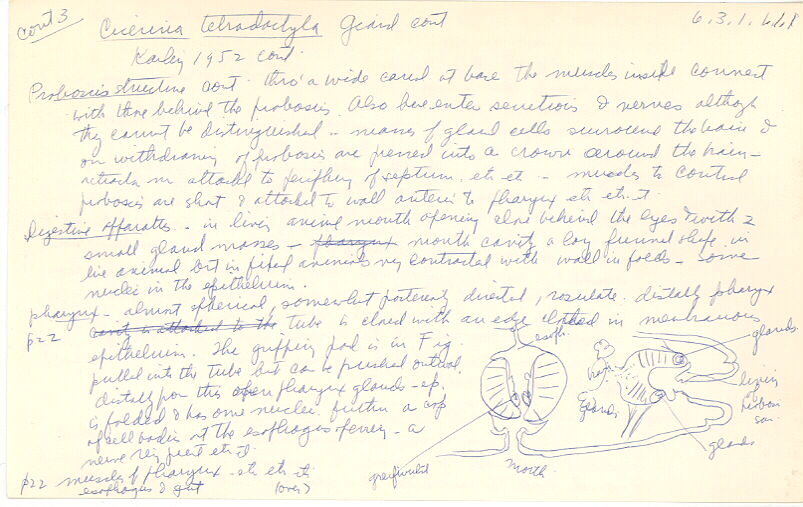 cont 3
Cicerina tetradactyla Geard cont
6.3.1.
Karling 1952 cont
Proboscis structure cont. thro' a wide canal at base the muscles inside connect
with those behind the proboscis. Also here enter secretions & nerves although
they cannot be distinguished - masses of gland cells surround the brain &
on withdrawing of proboscis are pressed into a crown around the brain -
retractors attached to periphery of septum. etc et - muscles to control
proboscis are short & attached to wall anterior to pharynx etc etc.
Digestive Apparatus - in living animal mouth opening close behind the eyes & with 2
small gland masses - pharynx mouth cavity a long funnel shape in
live animal but in fixed animals very contracted with wall in folds - some
nuclei in the epithelium.
pharynx - almost spherical, somewhat posteriorly directed, rosulate. distally pharynx
p22 cavity is attached to the tube is closed with an edge clothed in membranous
epithelium. The gripping pad is in Fig
pulled into the tube but can be pushed outward
distally from this open pharynx glands - ep.
is folded & has some nuclei. further a
of cell bodies at the esophagus - a
nerve ring present etc
p22 muscles of pharynx - etc etc
esophagus & gut (over)
esoph.
greifwulst
mouth
brain
glands
glands
lining of
glands